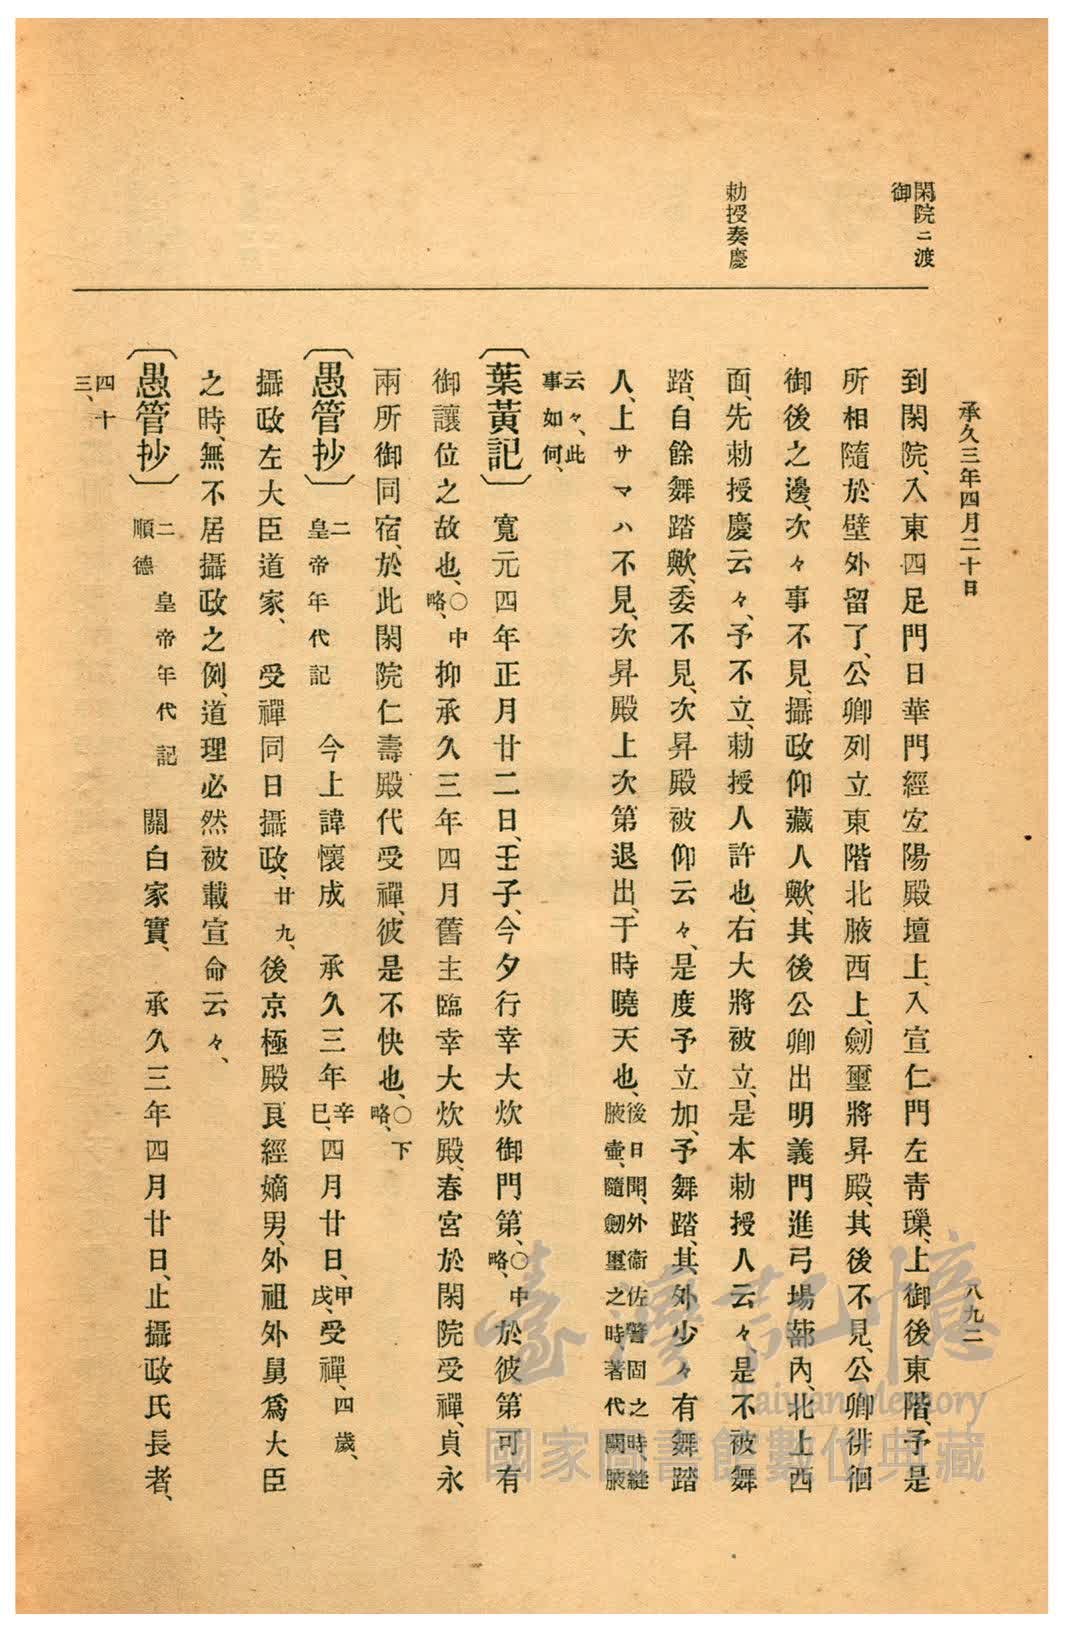 承久三年四月二十日
八九二
閑院ニ渡
御
勅授奏慶
到閑院、入東四足門日華門經宜陽殿壇上、入宣仁門左靑璅、上御後東階、予是
所相隨於壁外留了、公卿列立東階北腋西上、劔璽將昇殿、其後不見、公卿徘徊
御後之邊、次々事不見、攝政仰藏人歟、其後公卿出明義門進弓場蔀內、北上西
面、先勅授慶云々、予不立、勅授人許也、右大將被立、是本勅授人云々是不被舞
踏、自餘舞踏歟、委不見、次昇殿被仰云々、是度予立加、予舞踏、其外少々有舞踏
人、上サマハ不見、次昇殿上次第退出、于時曉天也、後日聞、外衞佐警固之時、縫
腋壷、隨劔璽之時著代闕腋
云々、此
事如何、
〔葉黃記〕寬元四年正月廿二日、壬子、今夕行幸大炊御門第、〇中
略、於彼第可有
御讓位之故也、〇中
略、抑承久三年四月舊主臨幸大炊殿、春宮於閑院受禪、貞永
兩所御同宿、於此閑院仁壽殿代受禪、彼是不快也、〇下
略、
〔愚管抄〕二
皇帝年代記 今上諱懷成 承久三年辛
巳、四月廿日、甲
戌、受禪、四歲、
攝政左大臣道家、 受禪同日攝政、廿九、後京極殿良經嫡男、外祖外舅爲大臣
之時、無不居攝政之例、道理必然被載宣命云々、
〔愚管抄〕二 皇帝年代記
順德 關白家實、 承久三年四月廿日、止攝政氏長者、
四十
三、
臺灣記憶
Taiwan Memory
國家圖書館數位典藏